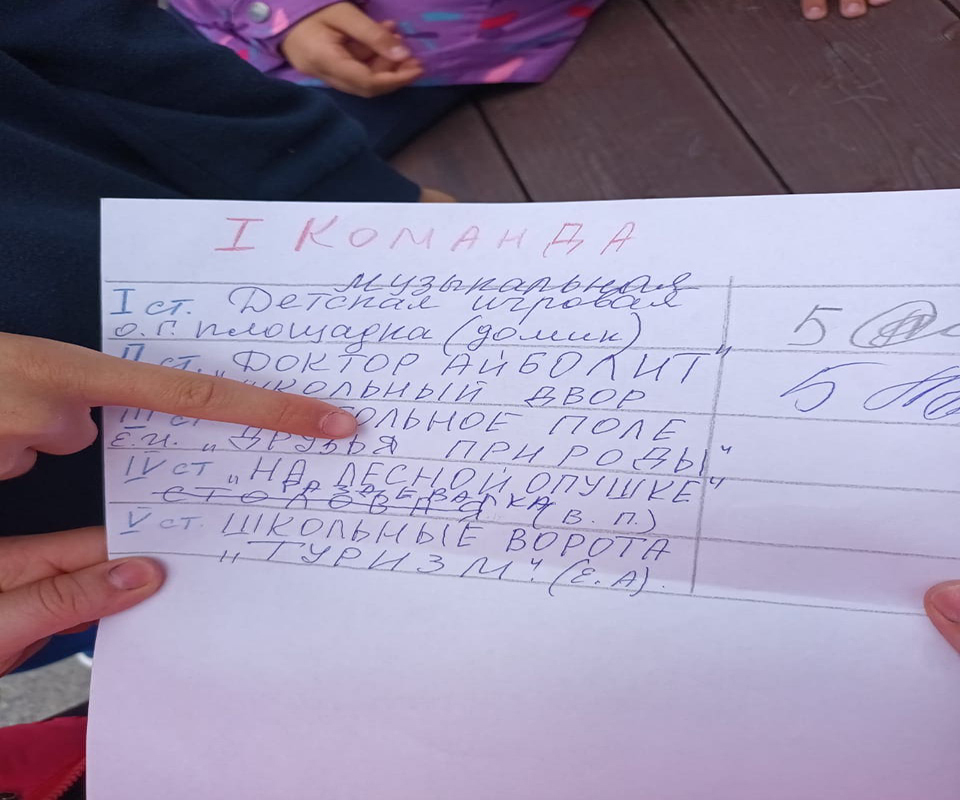 I КОМАНДА
музыкальная
I ст. Детская игровая
о.г. площадка (домик)
5
II ст. „ДОКТОР АЙБОЛИТ"
ШКОЛЬНЫЙ ДВОР
5
III ст ПОЛЕ
Е.И. „ДРУЗЬЯ ПРИРОДЫ"
IV ст „НА ЛЕСНОЙ ОПУШКЕ"
РАЗДЕВАЛКА (В. П.)
СТОЛОВАЯ
V ст. ШКОЛЬНЫЕ ВОРОТА
„ТУРИЗМ". (Е.А).